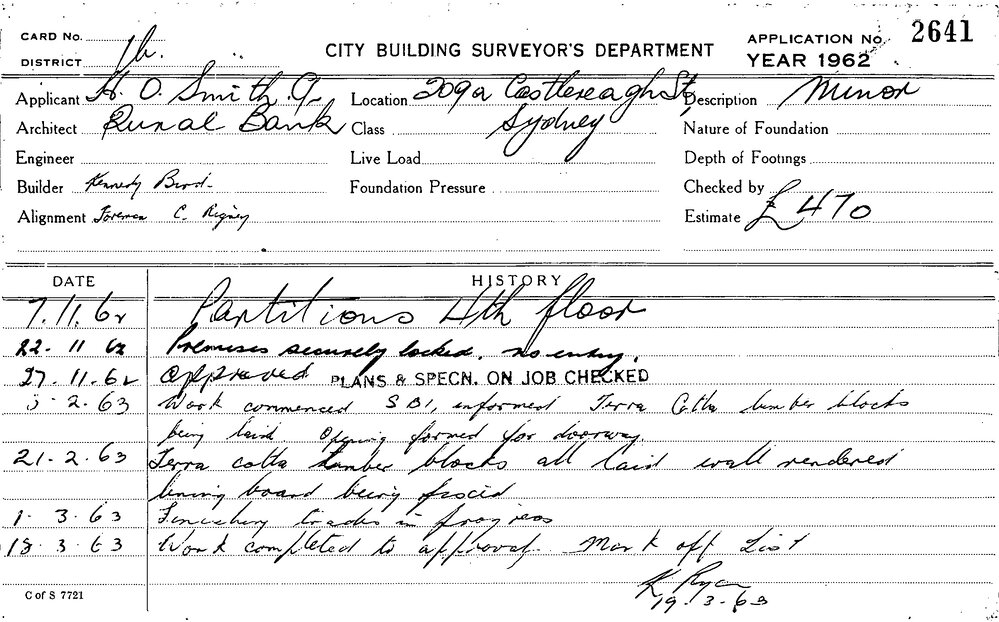 CARD No.
DISTRICT 1b.
CITY BUILDING SURVEYOR'S DEPARTMENT
APPLICATION No. 2641
YEAR 1962
Applicant H. O. Smith Location 209a Castlereagh St, Description Minor
Architect Rural Bank Class Sydney Nature of Foundation
Engineer Live Load Depth of Footings
Builder Kennedy Foundation Pressure Checked by
Alignment Foreman C. Rigney Estimate £470
DATE HISTORY
7.11.62 Partitions 4th floor
22-11 62 Premises securely locked. no entry.
27.11.62 Approved PLANS & SPECN. ON JOB CHECKED
5-2.63 Work commenced SBI, informed Terra Cotta lumber blocks
being laid. Opening formed for doorway.
21-2.63 Terra cotta lumber blocks all laid wall rendered
lining board being
1-3.63 trades in progress
18.3.63 Work completed to approval. Mark off List
K Ryan
19.3-63
C of S 7721